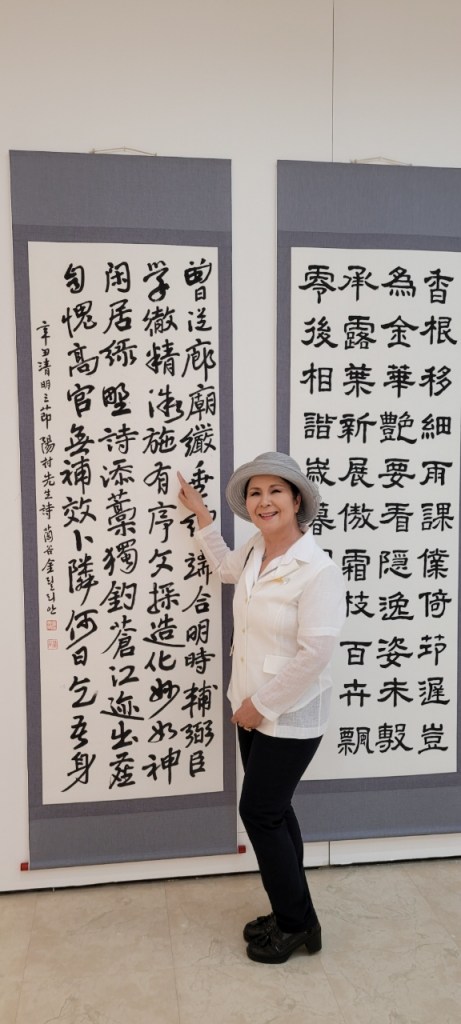 香根移細雨課僕倚笻遲豈
為金華艶要看隱逸姿未敷
承露葉新展傲霜枝百卉飄
零後相諧歲暮
曽從廊廟儼垂紳端合明時輔弼臣
学徹精微施有序文探造化妙如神
閑居綠野詩添藁獨釣蒼江迹出塵
自愧高官無補效卜隣何日乞吾身
辛丑清明之節 陽村先生詩 金